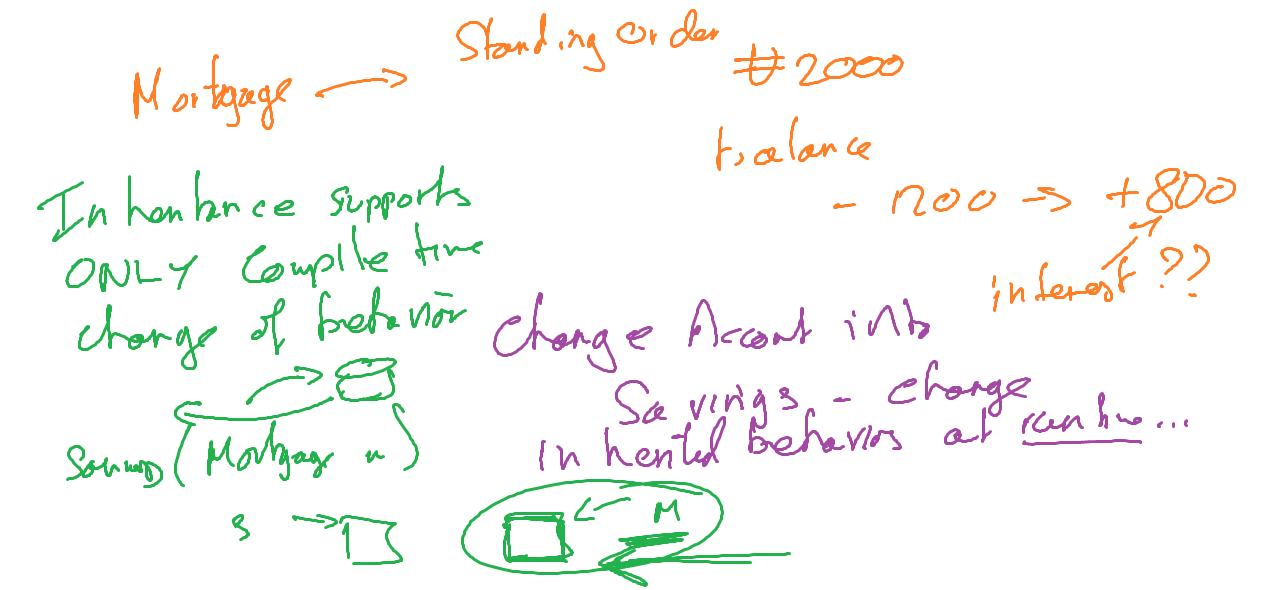 Standing Order
Mortgage
#2000
balance
- 1200 => +800
interest ??
Inheritance supports
ONLY Compile time
change of behavior
Change Account into
Savings - change
Inherited behaviors at runtime...
Savings (Mortgage m)
S
M